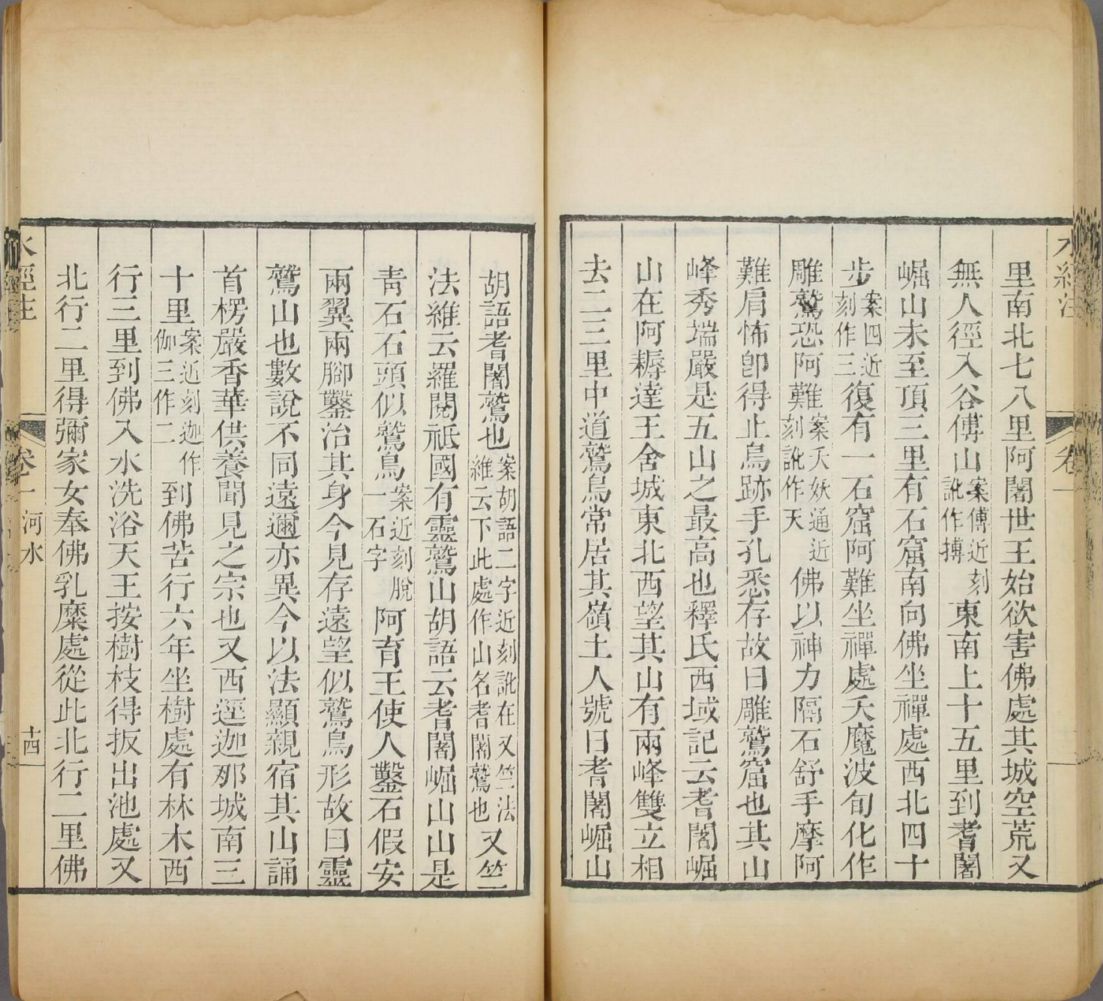 水經注 卷一
里南北七八里阿闍世王始欲害佛處其城空荒又
無人徑入谷傅山案傅近刻訛作搏東南上十五里到耆闍
崛山未至頂三里有石窟南向佛坐禪處西北四十
步案四近刻作三復有一石窟阿難坐禪處天魔波旬化作
雕鷲恐阿難案夭妖通近刻訛作天佛以神力隔石舒手摩阿
難肩怖卽得止鳥跡手孔悉存故曰雕鷲窟也其山
峰秀端嚴是五山之最高也釋氏西域記云耆闍崛
山在阿耨達王舍城東北西望其山有兩峰雙立相
去二三里中道鷲鳥常居其嶺土人號曰耆闍崛山
胡語耆闍鷲也案胡語二字近刻訛在又竺法維云下此處作山名耆闍鷲也又竺
法維云羅閱祇國有靈鷲山胡語云耆闍崛山山是
靑石石頭似鷲鳥案近刻脫一石字阿育王使人鑿石假安
兩翼兩腳鑿治其身今見存遠望似鷲鳥形故曰靈
鷲山也數說不同遠邇亦異今以法顯親宿其山誦
首楞嚴香華供養聞見之宗也又西逕迦那城南三
十里案近刻迦作伽三作二到佛苦行六年坐樹處有林木西
行三里到佛入水洗浴天王按樹枝得扳出池處又
北行二里得彌家女奉佛乳糜處從此北行二里佛
水經注 卷一 河水 十四